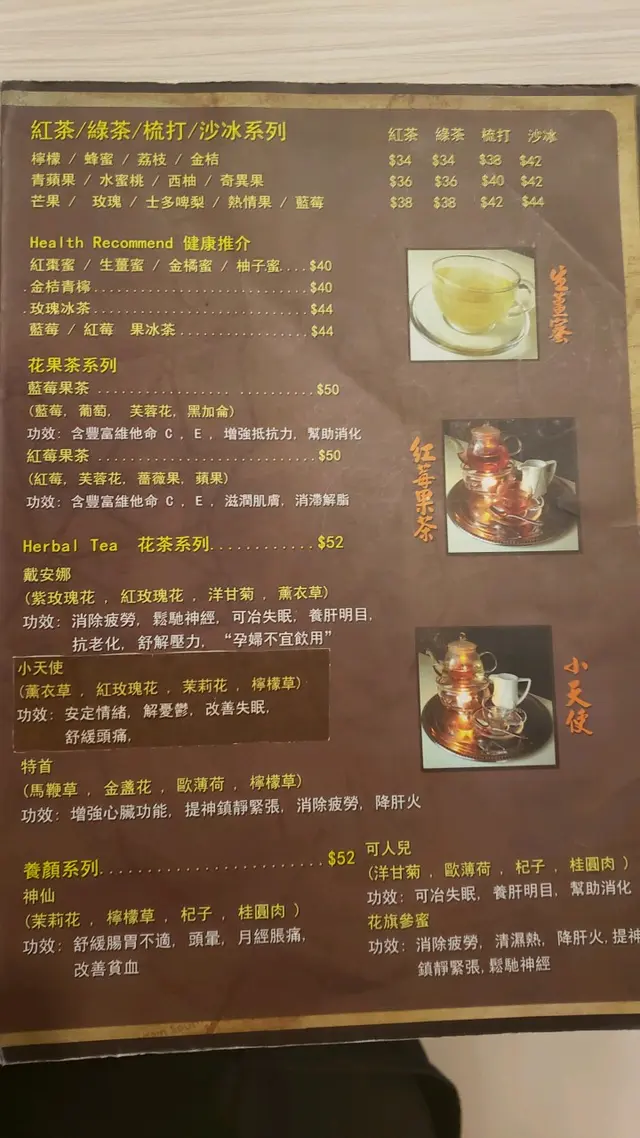 紅茶/綠茶/梳打/沙冰系列 紅茶 綠茶 梳打 沙冰
檸檬 / 蜂蜜 / 荔枝 / 金桔 $34 $34 $38 $42
青蘋果 / 水蜜桃 / 西柚 / 奇異果 $36 $36 $40 $42
芒果 / 玫瑰 / 士多啤梨 / 熱情果 / 藍莓 $38 $38 $42 $44
Health Recommend 健康推介
紅棗蜜 / 生薑蜜 / 金橘蜜 / 柚子蜜....$40
金桔青檸................................$40
玫瑰冰茶................................$44
藍莓 / 紅莓 果冰茶...................$44
生薑蜜
花果茶系列
藍莓果茶 ................. ..........$50
(藍莓, 葡萄, 芙蓉花, 黑加侖)
功效: 含豐富維他命 C , E , 增強抵抗力, 幫助消化
紅莓果茶 ............................$50
(紅莓, 芙蓉花, 薔薇果, 蘋果)
功效: 含豐富維他命 C , E , 滋潤肌膚, 消滯解脂
紅莓果茶
Herbal Tea 花茶系列............$52
戴安娜
(紫玫瑰花 , 紅玫瑰花 , 洋甘菊 , 薰衣草)
功效: 消除疲勞, 鬆馳神經, 可冶失眠, 養肝明目,
抗老化, 舒解壓力, “孕婦不宜飲用”
小天使
(薰衣草 , 紅玫瑰花 , 茉莉花 , 檸檬草)
功效: 安定情緒, 解憂鬱, 改善失眠,
舒緩頭痛,
小天使
特首
(馬鞭草 , 金盞花 , 歐薄荷 , 檸檬草)
功效: 增強心臟功能, 提神鎮靜緊張, 消除疲勞, 降肝火
養顏系列........................$52
神仙
(茉莉花 , 檸檬草 , 杞子 , 桂圓肉 )
功效: 舒緩腸胃不適, 頭暈, 月經脹痛,
改善貧血
可人兒
(洋甘菊 , 歐薄荷 , 杞子 , 桂圓肉 )
功效: 可冶失眠, 養肝明目, 幫助消化
花旗參蜜
功效: 消除疲勞, 清濕熱, 降肝火, 提神
鎮靜緊張, 鬆馳神經